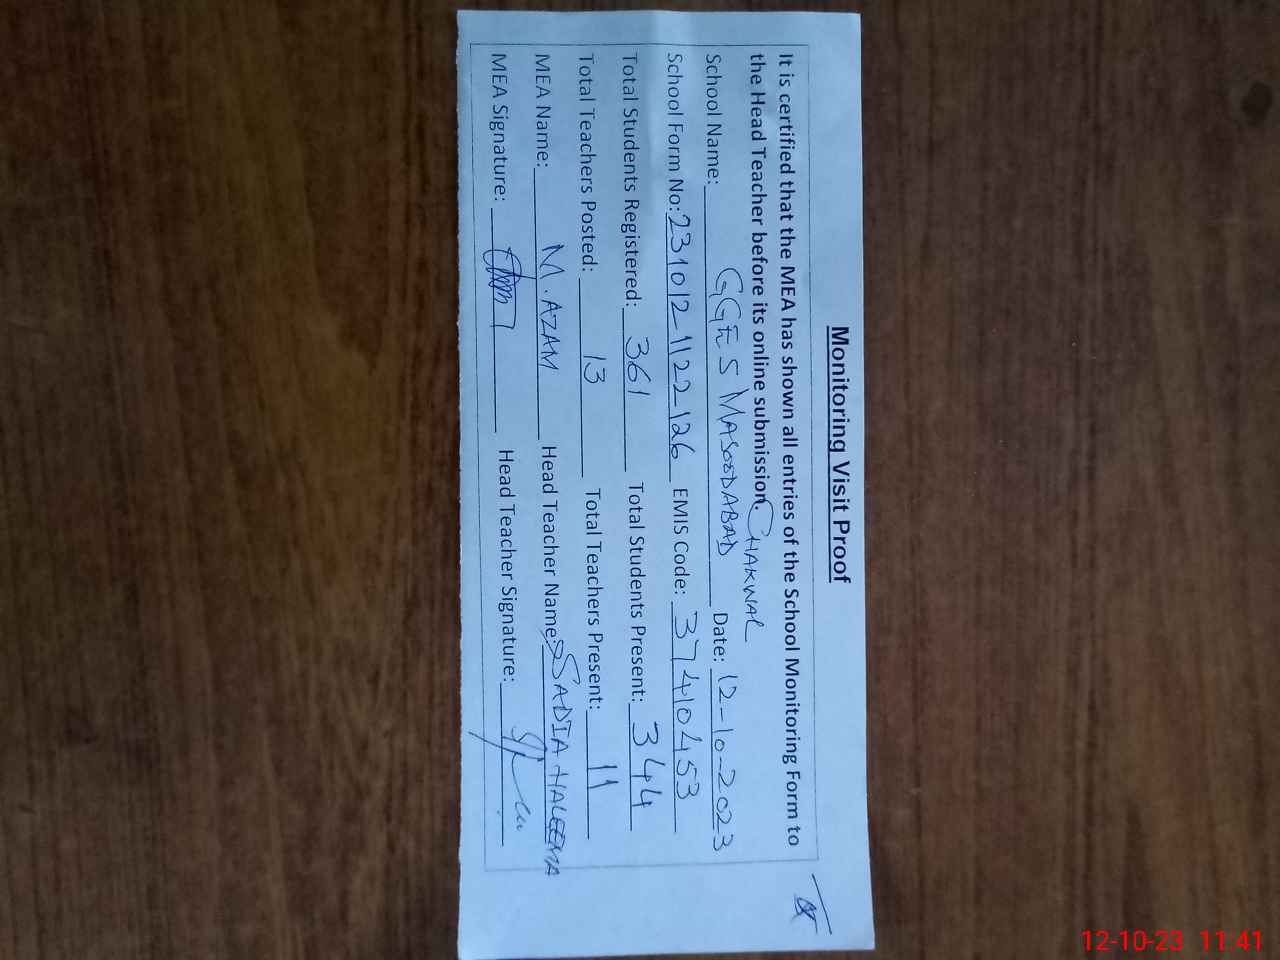 Monitoring Visit Proof
It is certified that the MEA has shown all entries of the School Monitoring Form to
the Head Teacher before its online submission. CHAKWAL
School Name: GGES MASOODABAD Date: 12-10-2023
School Form No: 231012-1122126 EMIS Code: 37410453
Total Students Registered: 361 Total Students Present: 344
Total Teachers Posted: 13 Total Teachers Present: 11
MEA Name: M. AZAM Head Teacher Name: SADIA HALEEMA
MEA Signature: Head Teacher Signature:
12-10-23 11:41